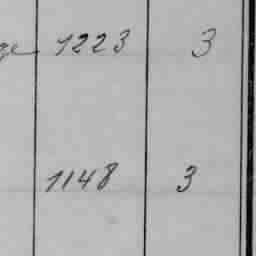 1223 3
1148 3